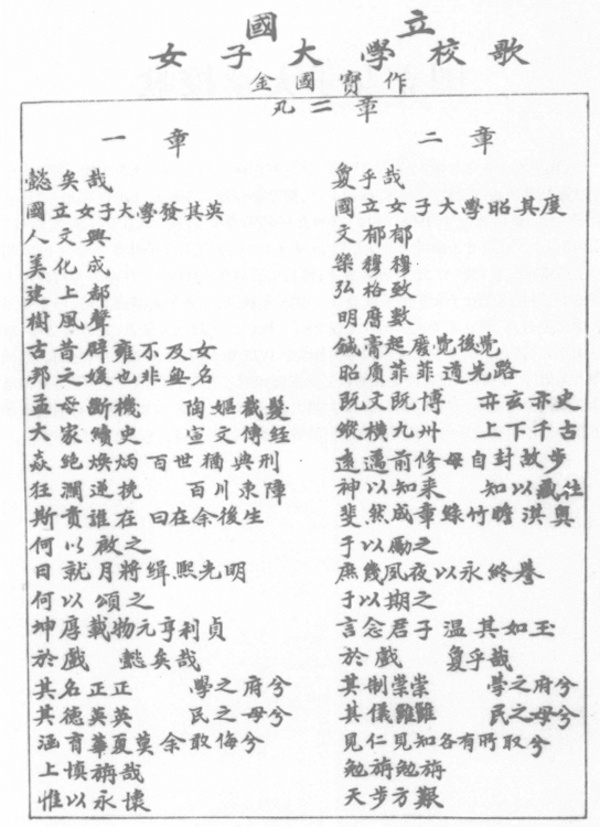 國立
女子大學校歌
金國寶作
凡二章
一章
懿矣哉
國立女子大學發其英
人文興
美化成
建上都
樹風聲
古昔辟雍不及女
邦之媛也非無名
孟母斷機 陶嫗截髮
大家續史 宣文傳經
焱絶煥炳百世猶典刑
狂瀾逆挽 百川東障
斯責誰在曰在余後生
何以啟之
日就月將緝熙光明
何以頌之
坤厚載物元亨利貞
於戲 懿矣哉
其名正正 學之府兮
其德英英 民之母兮
涵育華夏莫余敢侮兮
上慎旃哉
惟以永懷
二章
夐乎哉
國立女子大學昭其度
文郁郁
樂穆穆
弘格致
明曆數
鍼膏起廢覺後覺
昭質菲菲遵光路
既文既博 亦玄亦史
縱橫九州 上下千古
遠邁前修毋自封故步
神以知来 知以藏往
斐然成章綠竹瞻淇奧
于以勵之
庶幾夙夜以永終譽
于以期之
言念君子溫其如玉
於戲 夐乎哉
其制崇崇 學之府兮
其儀雝雝 民之母兮
見仁見知各有所取兮
勉旃勉旃
天步方艱